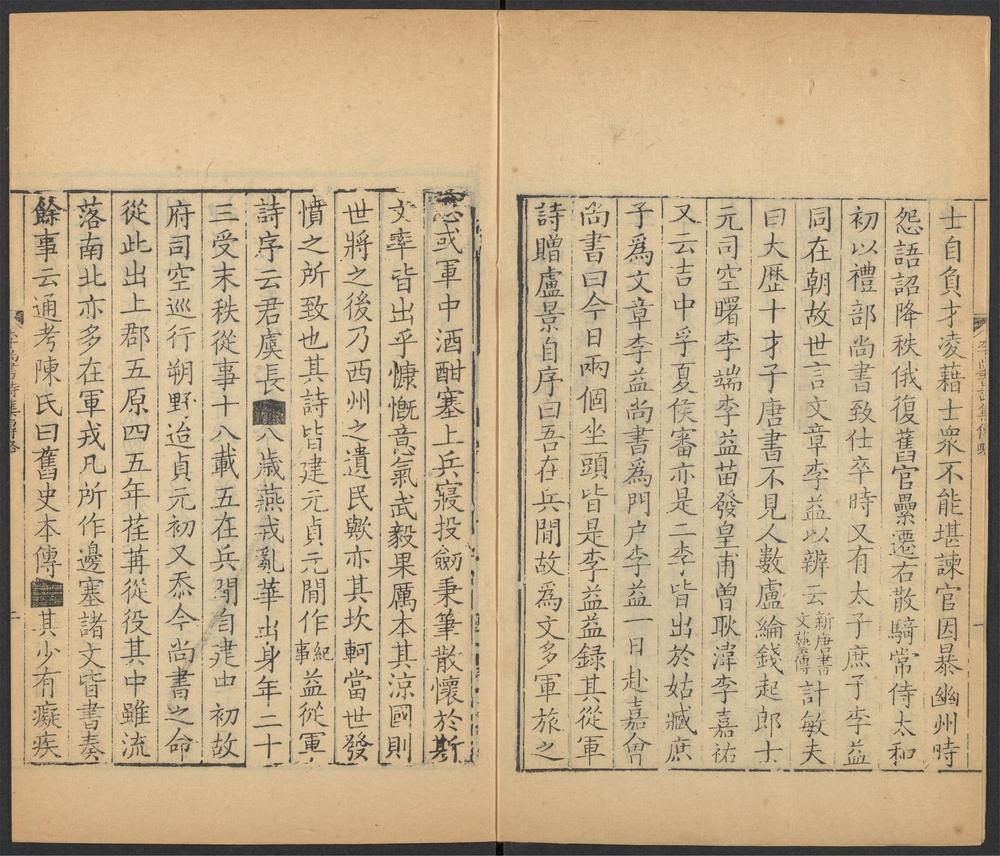 士自負才凌藉士衆不能堪諫官因暴幽州時
怨語詔降秩俄復舊官纍遷右散騎常侍太和
初以禮部尚書致仕卒時又有太子庶子李益
同在朝故世言文章李益以辨云新唐書文藝傳計敏夫
曰大歴十才子唐書不見人數盧綸錢起郎士
元司空曙李端李益苗發皇甫曾耿湋李嘉祐
又云吉中孚夏侯審亦是二李皆出於姑臧庶
子爲文章李益尚書爲門户李益一日赴嘉會
尚書曰今日兩個坐頭皆是李益益録其從軍
詩贈盧景自序曰吾在兵間故爲文多軍旅之
或軍中酒酣塞上兵寢投劒秉筆散懷於斯
文率皆出乎慷慨意氣武毅果厲本其涼國則
世將之後乃西州之遺民歟亦其坎軻當世發
憤之所致也其詩皆建元貞元間作紀事益從軍
詩序云君虞長八歲燕戎亂華出身年二十
三受末秩從事十八載五在兵間自建中初故
府司空巡行朔野迨貞元初又忝今尚書之命
從此出上郡五原四五年荏苒從役其中雖流
落南北亦多在軍戎凡所作邊塞諸文皆書奏
餘事云通考陳氏曰舊史本傳其少有癡疾